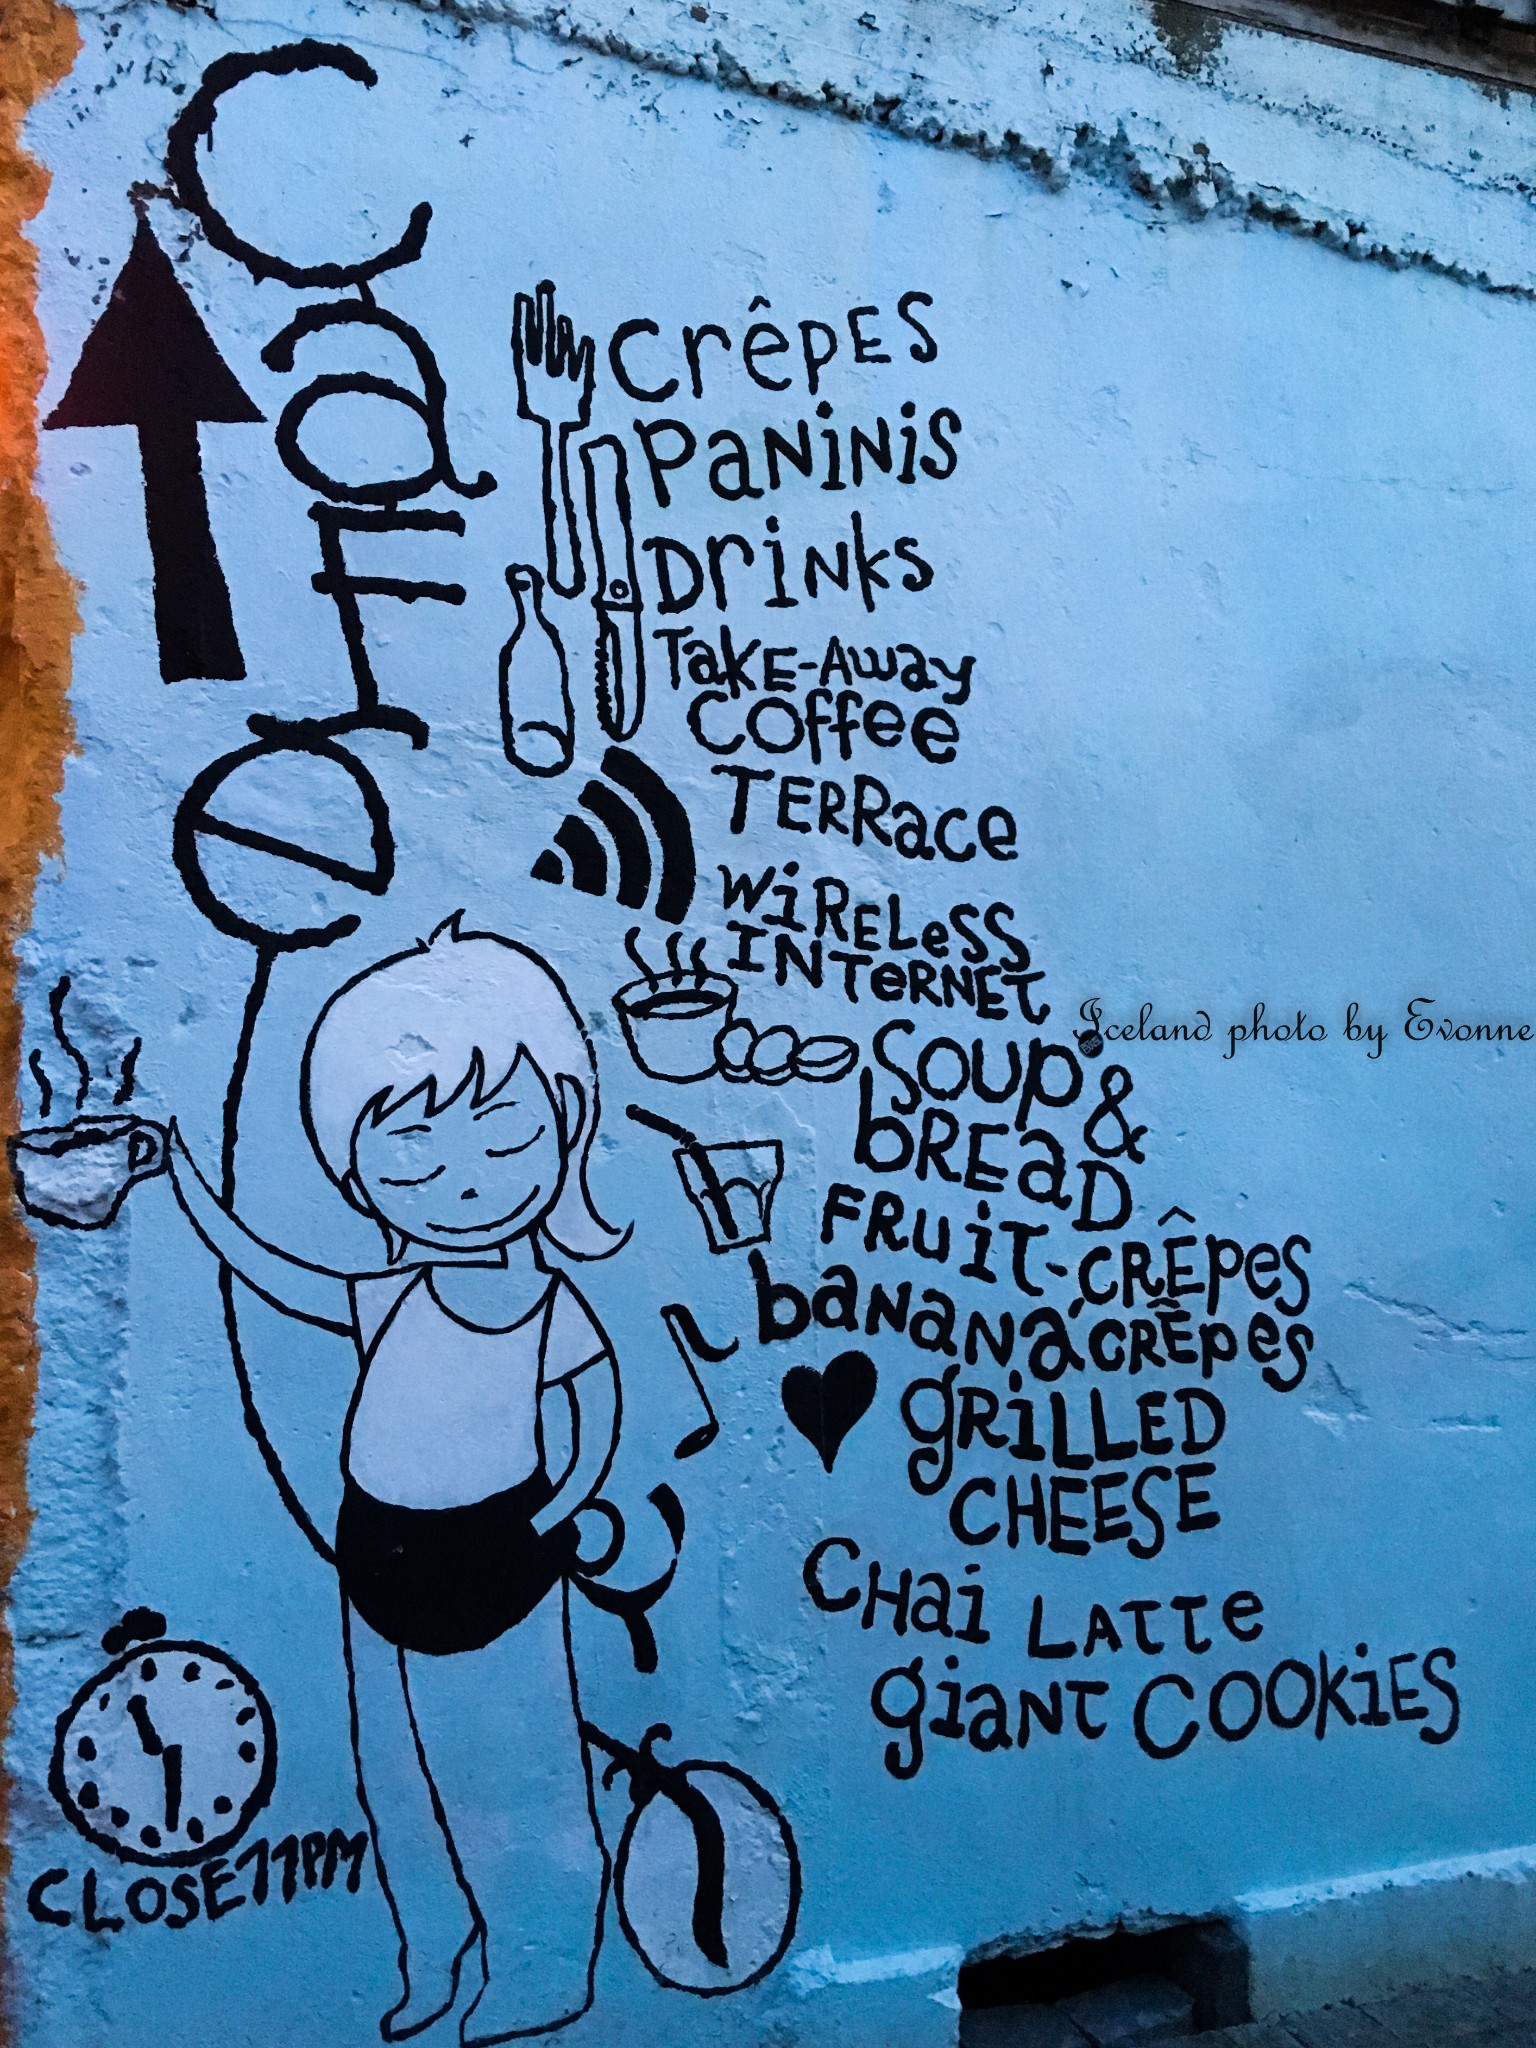 CaFe
CrêpES
PaNiNiS
DriNkS
TakE-Away
Coffee
TERRace
WiRELeSS
INTeRNET
Iceland photo by Evonne
SOUp &
bREaD
FRuiT-CRÊpes
baNaNa CRÊpes
gRiLLED
CHEESE
CHai LATTe
giaNT COOKiES
CLOSE 11PM